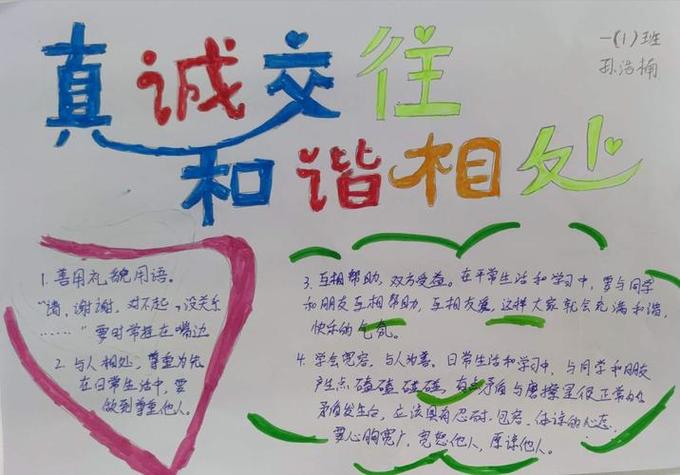 真诚交往
和谐相处
一(1)班
孙浩楠
1. 善用礼貌用语。
"请, 谢谢, 对不起, 没关系
……" 要时常挂在嘴边
2. 与人相处, 尊重为先
在日常生活中, 要
做到尊重他人。
3. 互相帮助, 双方受益。在平常生活和学习中, 要与同学
和朋友互相帮助, 互相友爱, 这样大家就会充满和谐,
快乐的气氛。
4. 学会宽容, 与人为善。日常生活和学习中, 与同学和朋友
产生点磕磕碰碰, 有点矛盾与摩擦是很正常的
矛盾发生后, 应该具有忍耐, 包容, 体谅的心态,
要心胸宽广, 宽恕他人, 原谅他人。